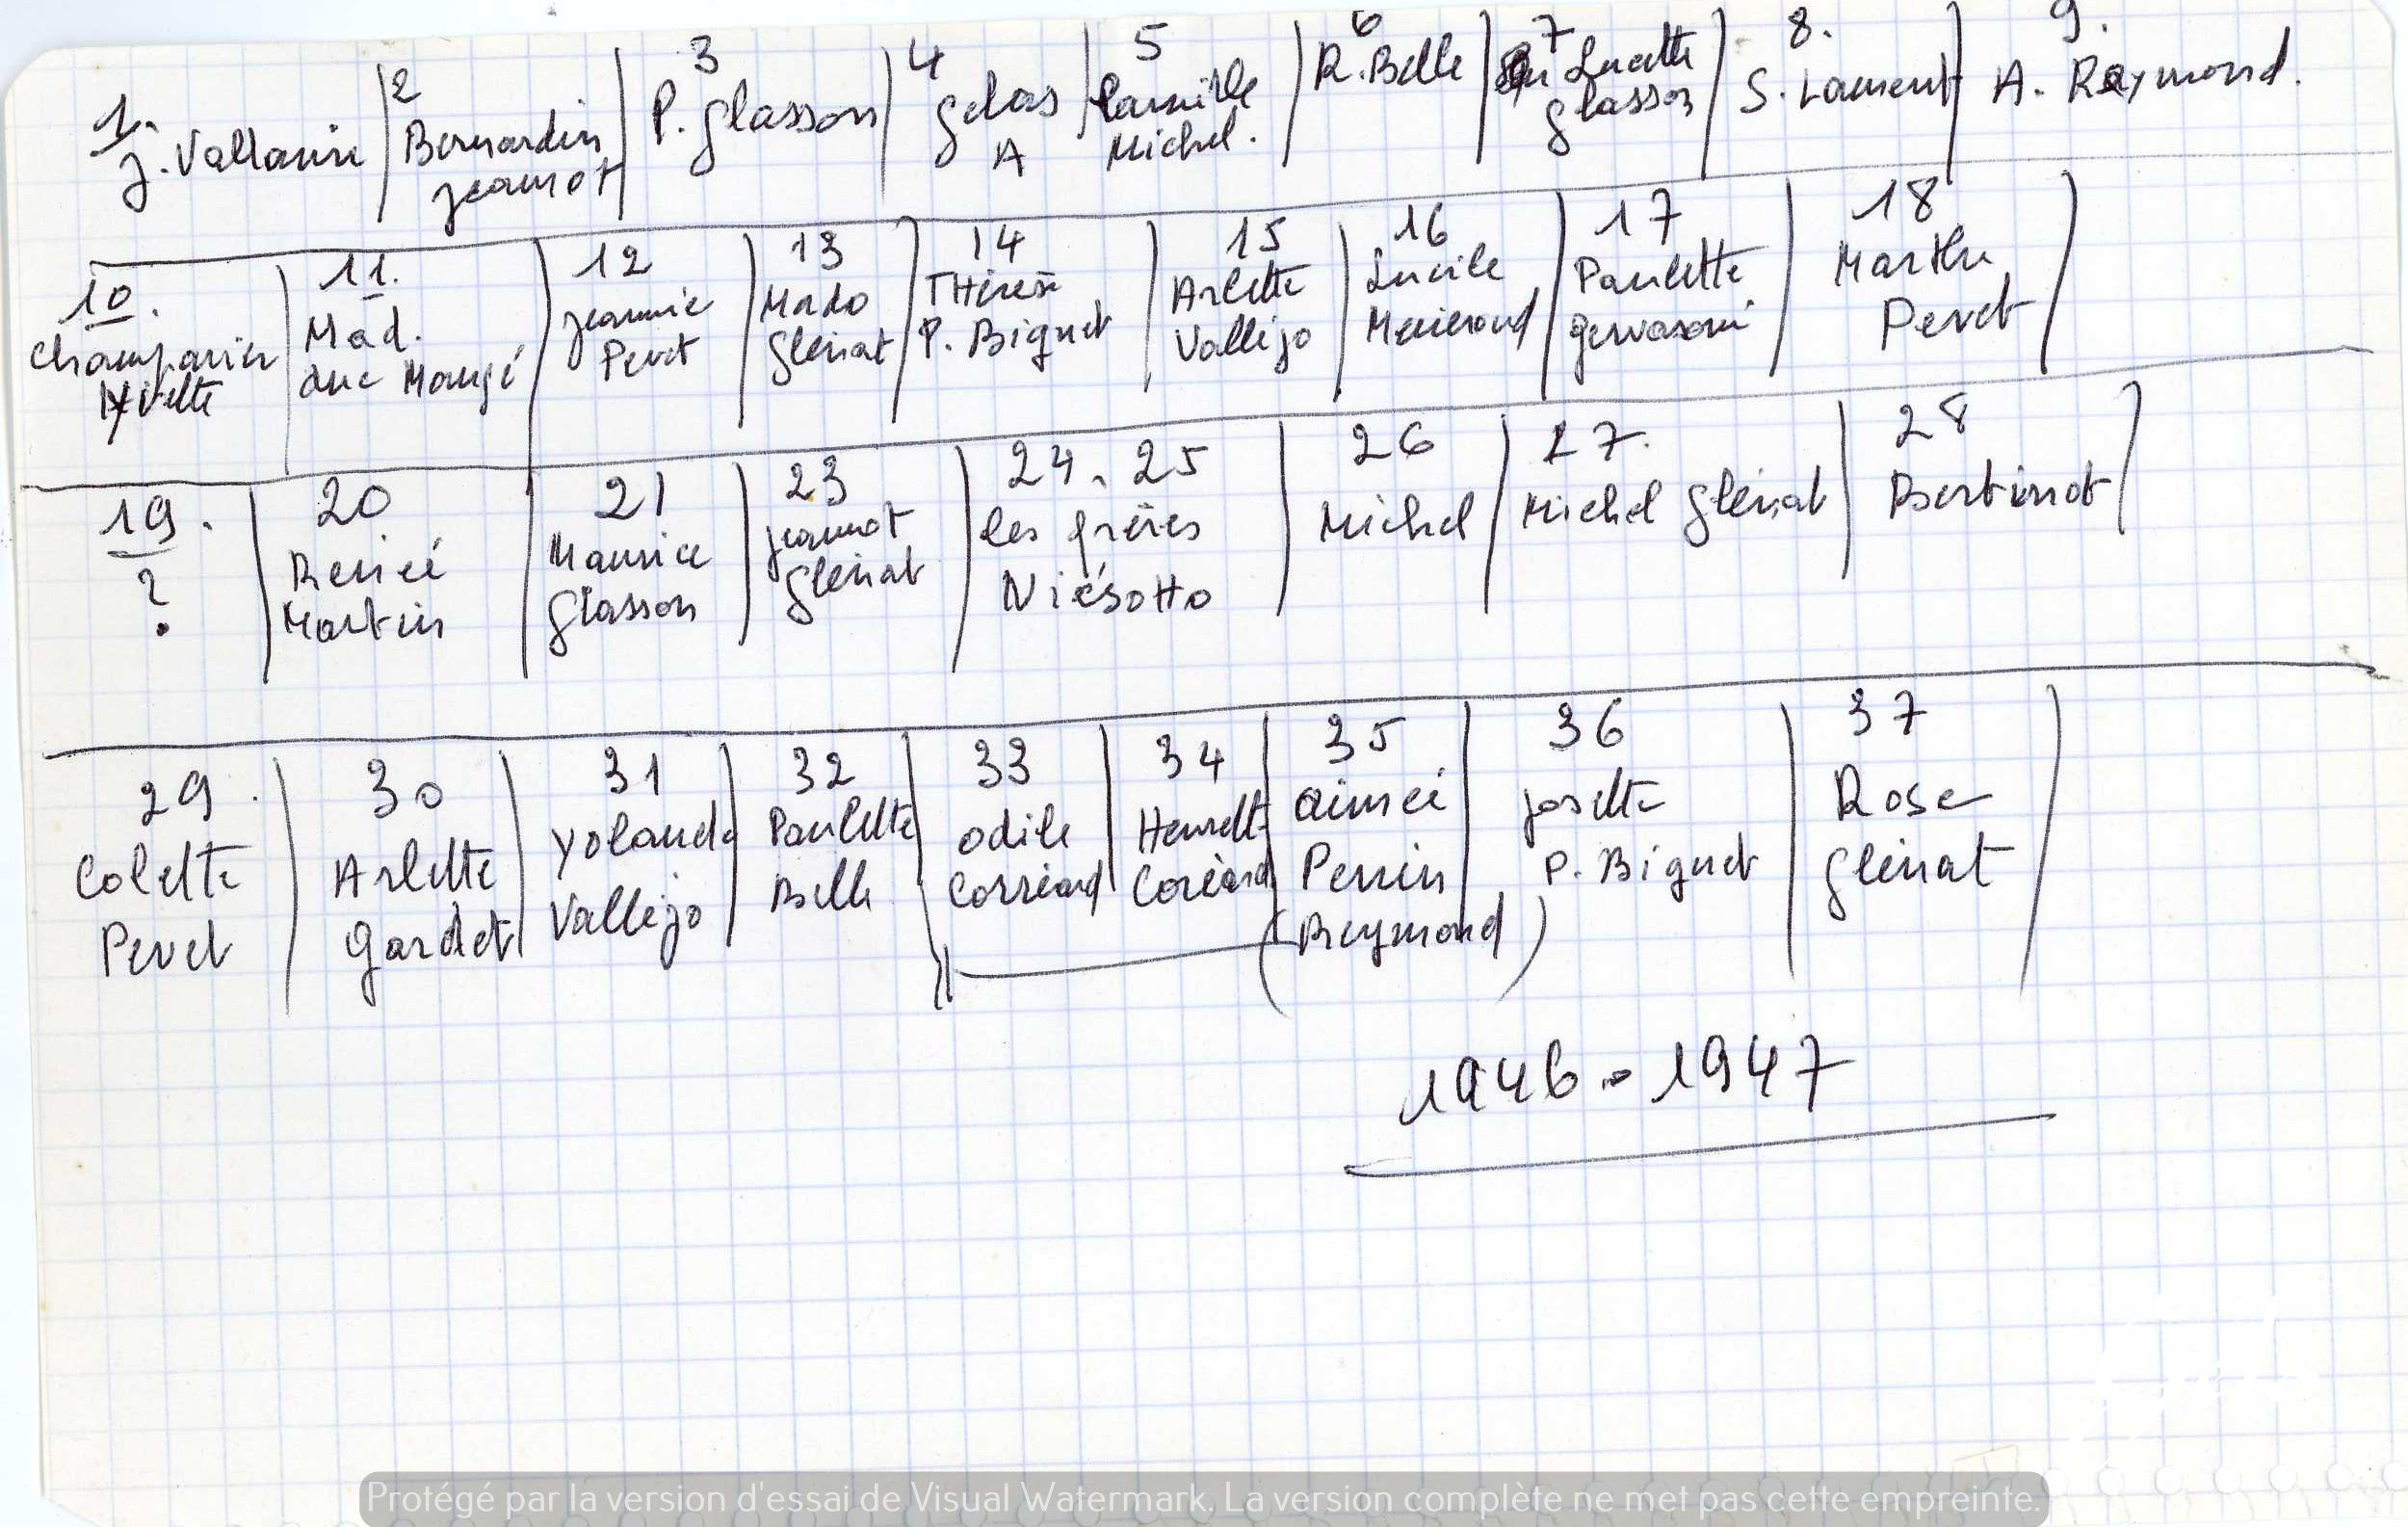 1. 2 3 4 5 6 7 8. 9.
J. Vallarin Bernardin P. Glasson Gelas Camille R. Belle Lucette S. Laurent A. Raymond.
Jeannot A Michel. Glasson
10. 11. 12 13 14 15 16 17 18
Champavier Mad. Jeannie Mado Thérèse Arlette Lucile Paulette Marthe
Yvette duc Mangé Pevet Glénat P. Biguet Vallejo Gervasoni Pevet
19. 20 21 23 24. 25 26 27. 28
? Renée Maurice Jeannot les frères Michel Michel Glénat Bertinot
Martin Glasson Glénat Niésotto
29. 30 31 32 33 34 35 36 37
Colette Arlette Yolande Paulette Odile Henrette Aimée Josette Rose
Pevet Gardet Vallejo Belle Corréard Coréard Perrin P. Biguet Glénat
(Reymond)
1946 - 1947
Protégé par la version d'essai de Visual Watermark. La version complète ne met pas cette empreinte.